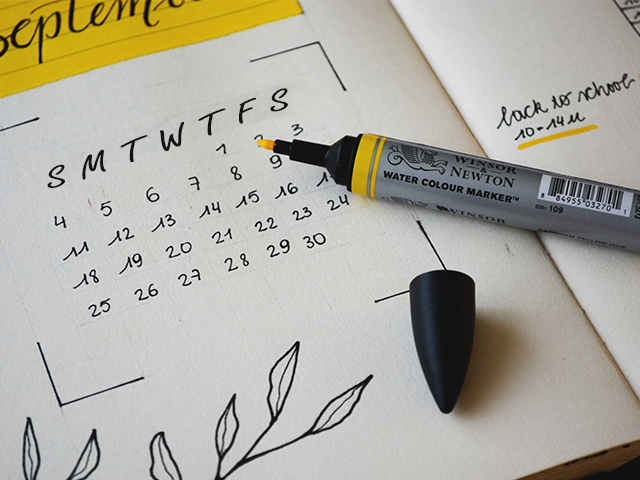 S M T W T F S
1 2 3
4 5 6 7 8 9
11 12 13 14 15 16
18 19 20 21 22 23 24
25 26 27 28 29 30
back to school
10-14
WINSOR
&
NEWTON
WATER COLOUR MARKER™
WINSOR
109
84955 03270